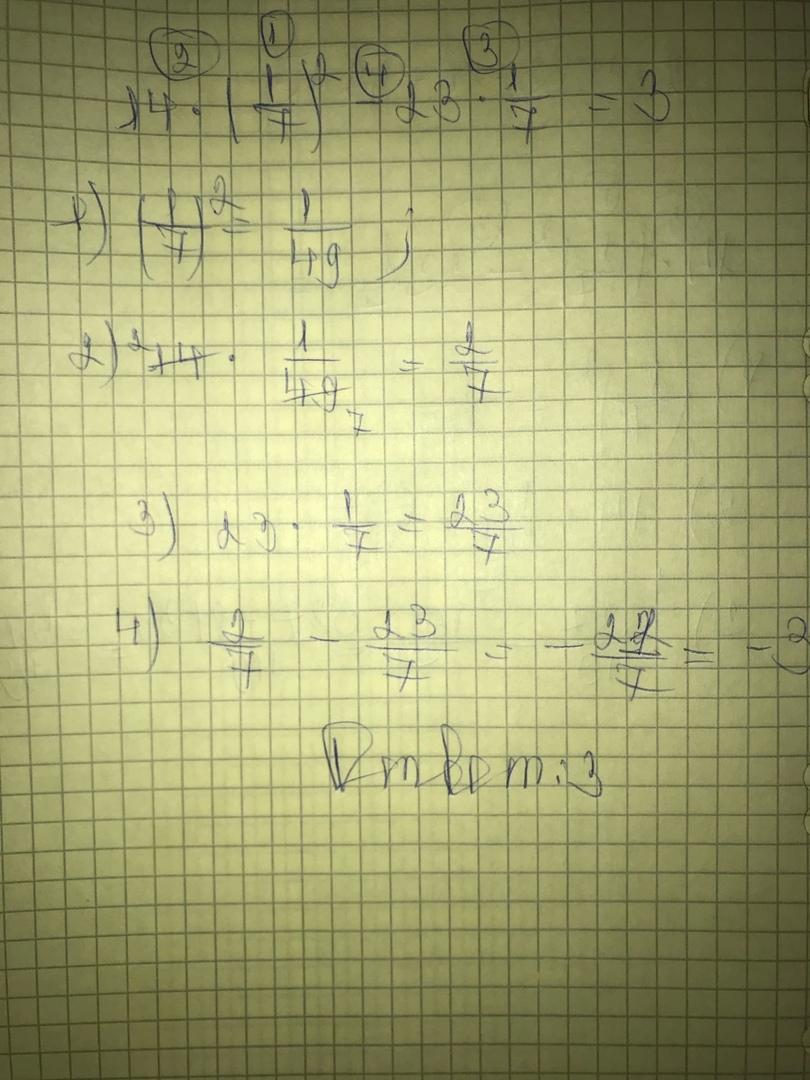 ② ① ④ ③
14 · (1/7)² - 23 · 1/7 = 3
1) (1/7)² = 1/49 ;
2) ²14 · 1/49 7 = 2/7
3) 23 · 1/7 = 23/7
4) 2/7 - 23/7 = - 21/7 = -3
Ответ: 3